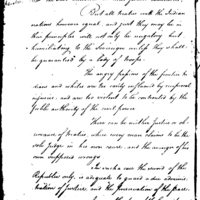 But all treaties with the Indian
nations however equal and just they may be in
their principles will not only be nugatory but
humiliating to the sovereign unless they shall
be guaranteed by a body of troops.
The angry passions of the frontier In-
dians and whites are too easily inflamed by reciprocal
injuries and are too violent to be controuled by the
feeble authority of the civil power.
There can be neither Justice or ob-
servance of treaties where every man claims to be the
sole Judge in his own cause and the avenger of his
own supposed wrongs.
In such a case the sword of the
Republic only, is adequate to guard a due adminis-
tration of Justice and the preservation of the peace.